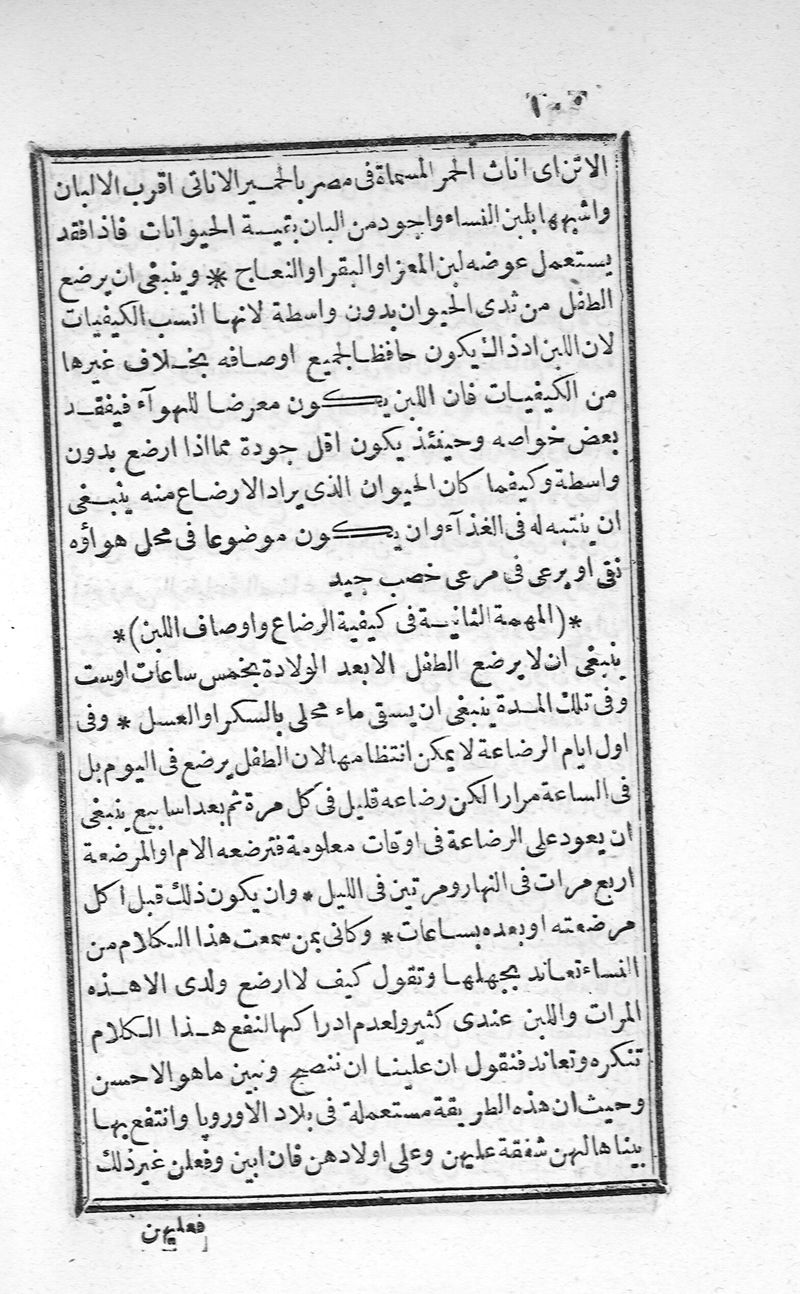 الاتن اى اناث الحمر المسماة فى مصر بالحمير الاناتى اقرب الالبان
واشبهها بلبن النساء واجود من البان بقية الحيوانات فاذا فقد
يستعمل عوضه لبن المعز او البقر او النعاج * وينبغى ان يرضع
الطفل من ثدى الحيوان بدون واسطة لانها انسب الكيفيات
لان اللبن اذ ذاك يكون حافظا لجميع اوصافه بخلاف غيرها
من الكيفيات فان اللبن يكون معرضا للهوآء فيفقد
بعض خواصه وحينئذ يكون اقل جودة مما اذا ارضع بدون
واسطة وكيفما كان الحيوان الذى يراد الارضاع منه ينبغى
ان ينتبه له فى الغذآء وان يكون موضوعا فى محل هواؤه
نقى او يرعى فى مرعى خصب جيد
*(المهمة الثانية فى كيفية الرضاع واوصاف اللبن)*
ينبغى ان لا يرضع الطفل الا بعد الولادة بخمس ساعات او ست
وفى تلك المدة ينبغى ان يسقى ماء محلى بالسكر او العسل * وفى
اول ايام الرضاعة لا يمكن انتظامها لان الطفل يرضع فى اليوم بل
فى الساعة مرارا لكن رضاعه قليل فى كل مرة ثم بعد اسابيع ينبغى
ان يعود على الرضاعة فى اوقات معلومة فترضعه الام او المرضعة
اربع مرات فى النهار ومرتين فى الليل * وان يكون ذلك قبل اكل
مرضعته او بعده بساعات * وكانى بمن سمعت هذا الكلام من
النساء تعاند بجهلها وتقول كيف لا ارضع ولدى الا هذه
المرات واللبن عندى كثير ولعدم ادراكها لنفع هذا الكلام
تنكره وتعاند فنقول ان علينا ان ننصح ونبين ما هو الاحسن
وحيث ان هذه الطريقة مستعملة فى بلاد الاوروپا وانتفع بها
بيناها لهن شفقة عليهن وعلى اولادهن فان ابين وفعلن غير ذلك
فعليهن